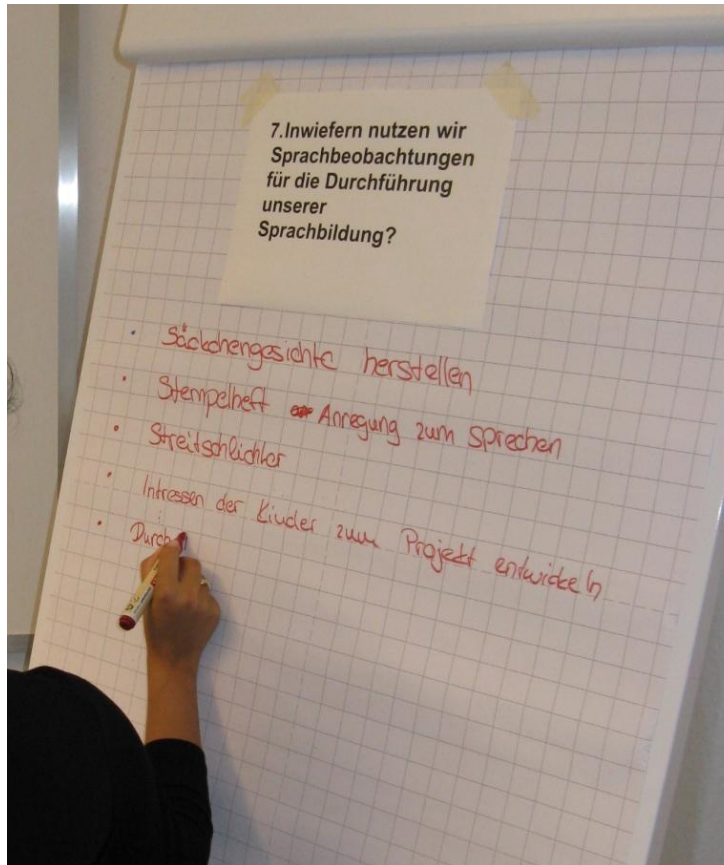 7.Inwiefern nutzen wir
Sprachbeobachtungen
für die Durchführung
unserer
Sprachbildung?
• Säckchengesichte herstellen
• Stempelheft Anregung zum Sprechen
• Streitschlichter
• Intressen der Kinder zum Projekt entwickeln
• Durch